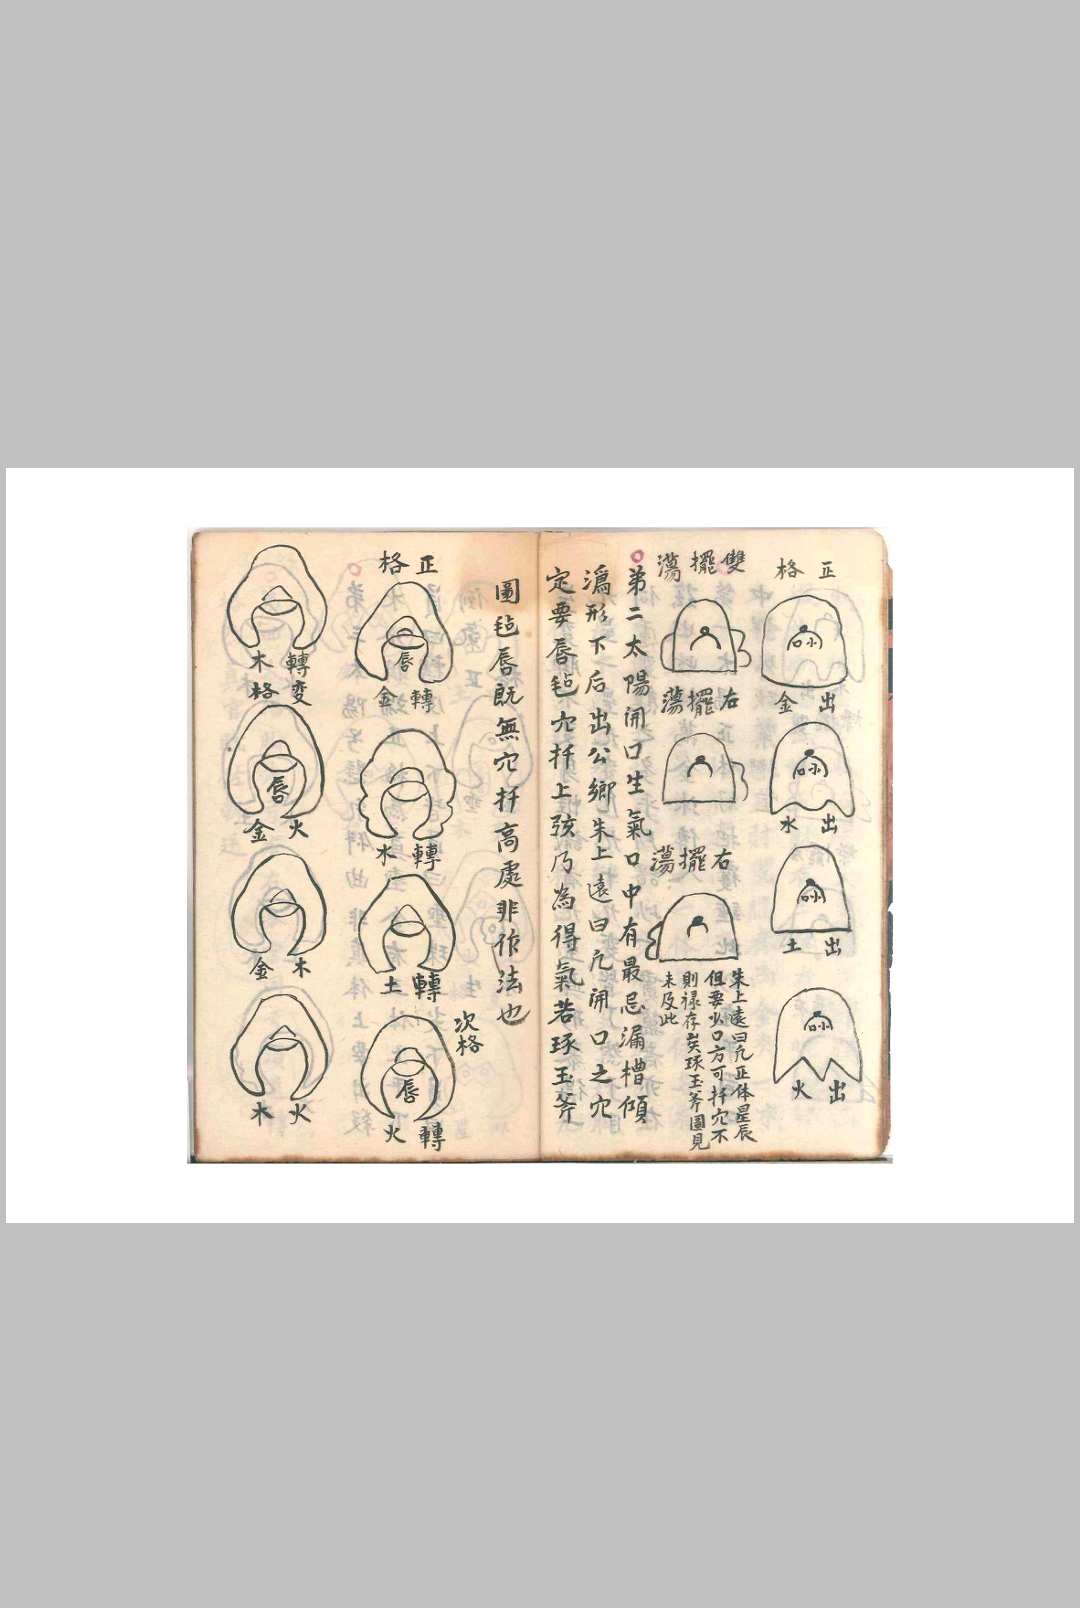 正格
出金
出水
出土
出火
雙擺蕩
右擺蕩
右擺蕩
朱上遠曰凡正体星辰
但要少口方可扦穴不
則禄存矣球玉斧圖見
未及此
弟二太陽開口生氣口中有最忌漏槽傾
瀉形下后出公鄉朱上遠曰凡開口之穴
定要唇毡穴扦上弦乃為得氣若球玉斧
圖毡唇既無穴扦高處非作法也
正格
唇
轉金
轉水
轉土
次格
唇
轉火
轉变
木格
唇
火金
木金
火木